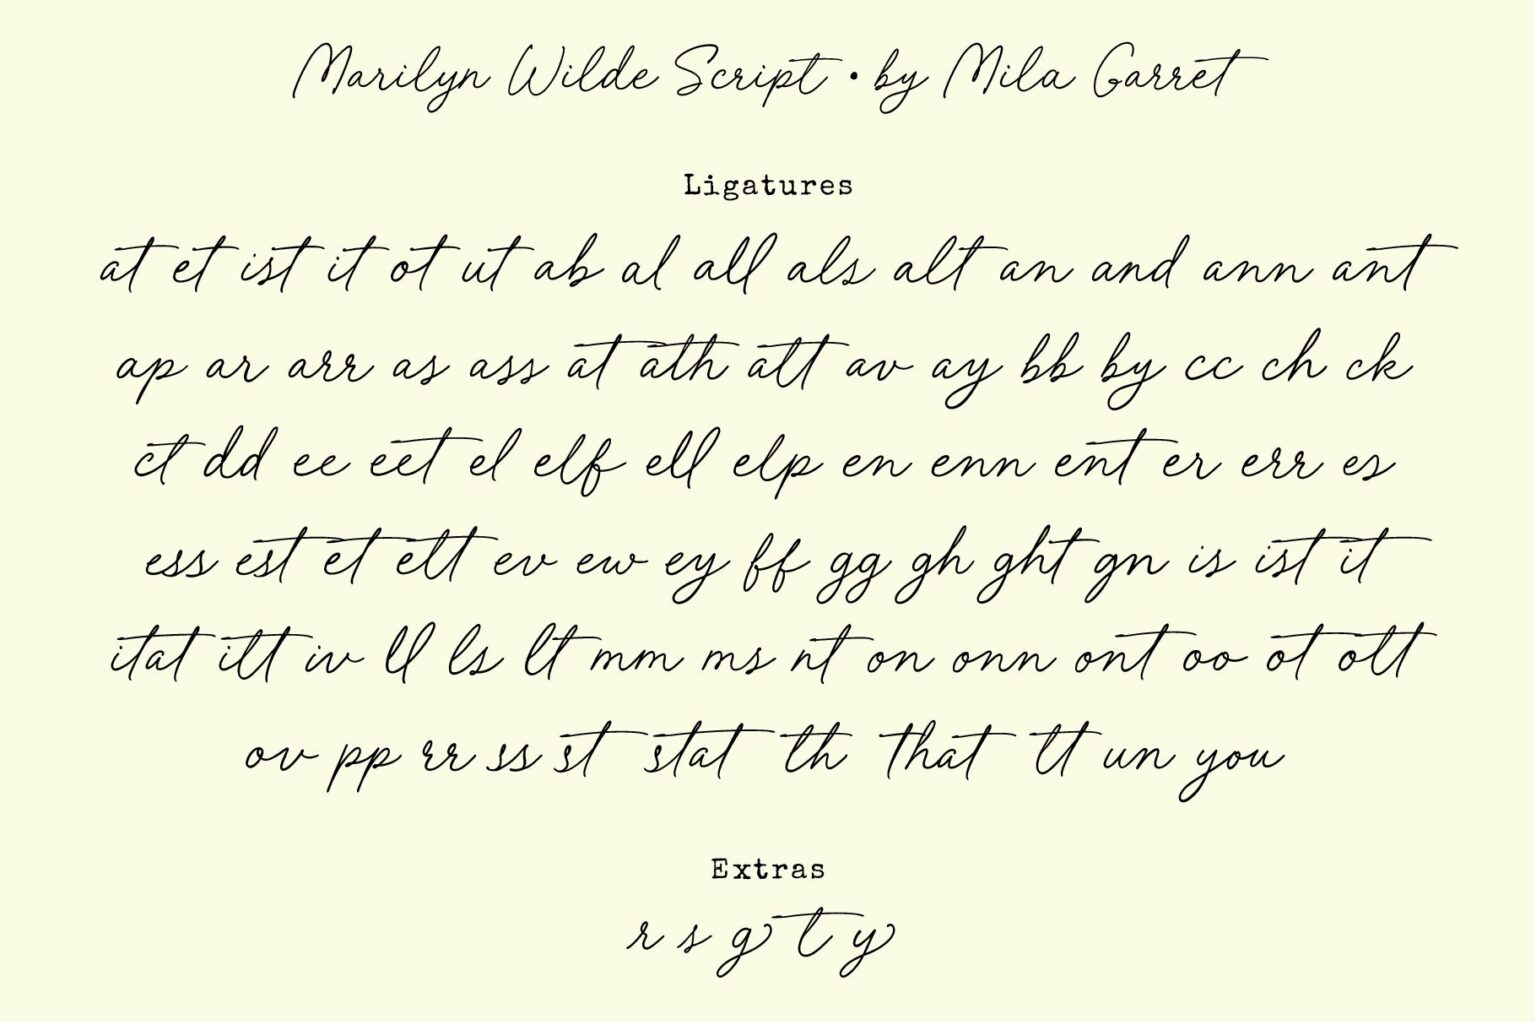 Marilyn Wilde Script • by Mila Garret
Ligatures
at et ist it ot ut ab al all als alt an and ann ant
ap ar arr as ass at ath att av ay bb by cc ch ck
ct dd ee eet el elf ell elp en enn ent er err es
ess est et ett ev ew ey ff gg gh ght gn is ist it
itat itt iv ll ls lt mm ms nt on onn ont oo ot ott
ov pp rr ss st stat th that tt un you
Extras
r s g t y